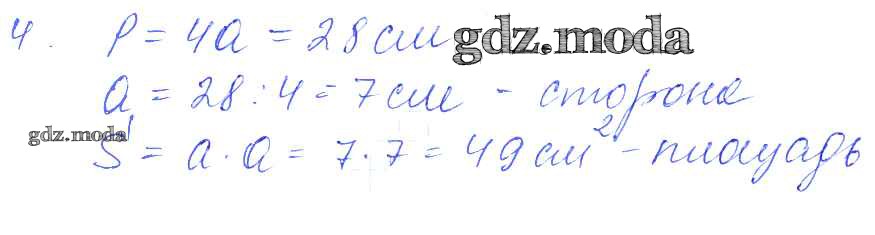 4. P = 4a = 28 см gdz.moda
a = 28 : 4 = 7 см - сторона
gdz.moda
S = a · a = 7 · 7 = 49 см² - площадь